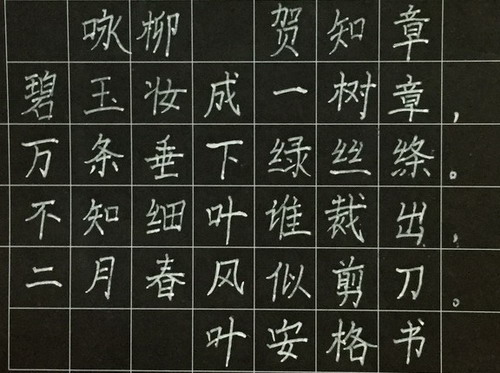 咏柳 贺知章
碧玉妆成一树章，
万条垂下绿丝绦。
不知细叶谁裁出，
二月春风似剪刀。
叶安格书